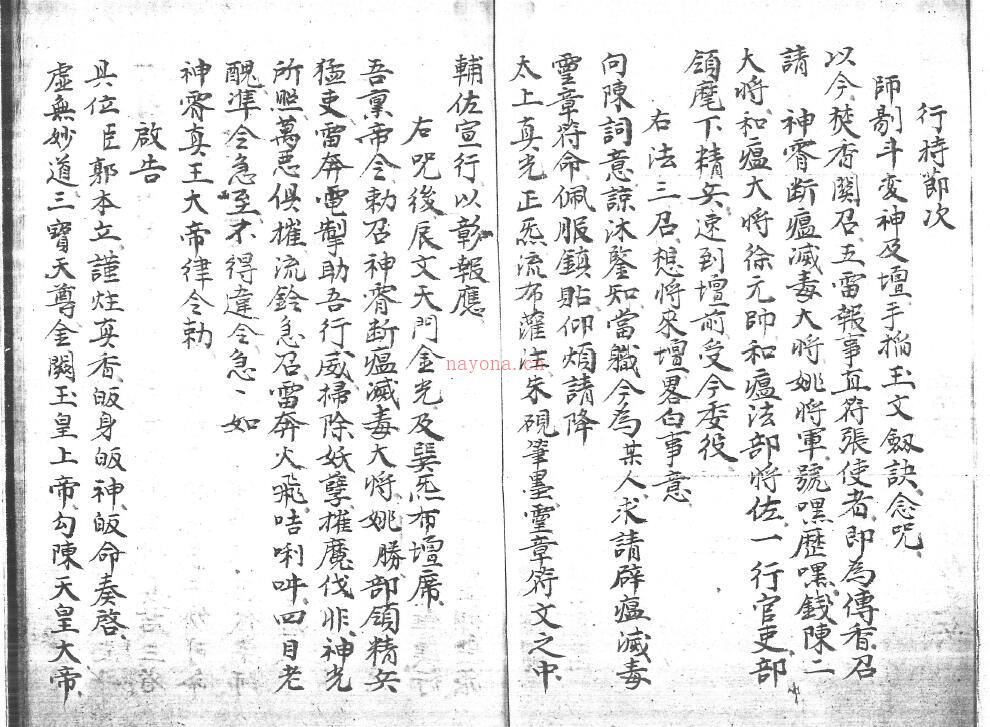 行持節次
師剔斗变神及壇手掐玉文劔訣念咒
以今焚香関召五雷報事直符張使者即為傳香召
請　神霄断瘟滅毒大将姚将軍號嘿歷嘿錢陳二
大将和瘟大将徐元帥和瘟法部将佐一行官吏部
領麾下精兵速到壇前受今委役
右法三召想将來壇畧白事意
向陳詞意諒沐鑒知當職今為某人求請辟瘟滅毒
霊章符命佩服鎮貼仰煩請降
太上真光正炁流布灌注朱硯筆墨霊章符文之中
輔佐宣行以彰報應
右咒後辰文天門金光及巽炁布壇席
吾禀帝令勅召神霄断瘟滅毒大将姚勝部領精兵
猛吏雷奔電掣助吾行威掃除妖孽摧魔伐非神光
所照萬悪俱摧流鈴急召雷奔火飛咭唎吽四目老
醜準令急至不得違令急丶如
神霄真王大帝律令勅
啟告
具位臣郭本立謹炷真香皈身皈神皈命奏啓
虚無妙道三寶天尊金闕玉皇上帝勾陳天皇大帝
nayona.cn